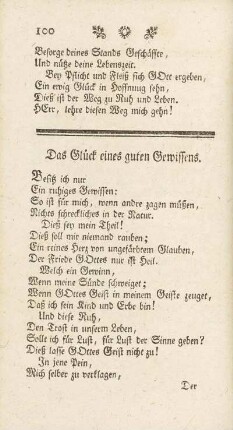 100
Besorge deines Stands Geschäffter,
Und nütze deine Lebenszeit.
Bey Pflicht und Fleiß sich GOtt ergeben,
Ein ewig Glück in Hoffnung sehn,
Dieß ist der Weg zu Ruh und Leben.
HErr, lehre diesen Weg mich gehn!
Das Glück eines guten Gewissens.
Besitz ich nur
Ein ruhiges Gewissen:
So ist für mich, wenn andre zagen müßen,
Nichts schreckliches in der Natur.
Dieß sey mein Theil!
Dieß soll mir niemand rauben;
Ein reines Herz von ungefärbtem Glauben,
Der Friede GOttes nur ist Heil.
Welch ein Gewinn,
Wenn meine Sünde schweiget;
Wenn GOttes Geist in meinem Geiste zeuget,
Daß ich sein Kind und Erbe bin!
Und diese Ruh,
Den Trost in unserm Leben,
Sollt ich für Lust, für Lust der Sinne geben?
Dieß lasse GOttes Geist nicht zu!
In jene Pein,
Mich selber zu verklagen,
Der